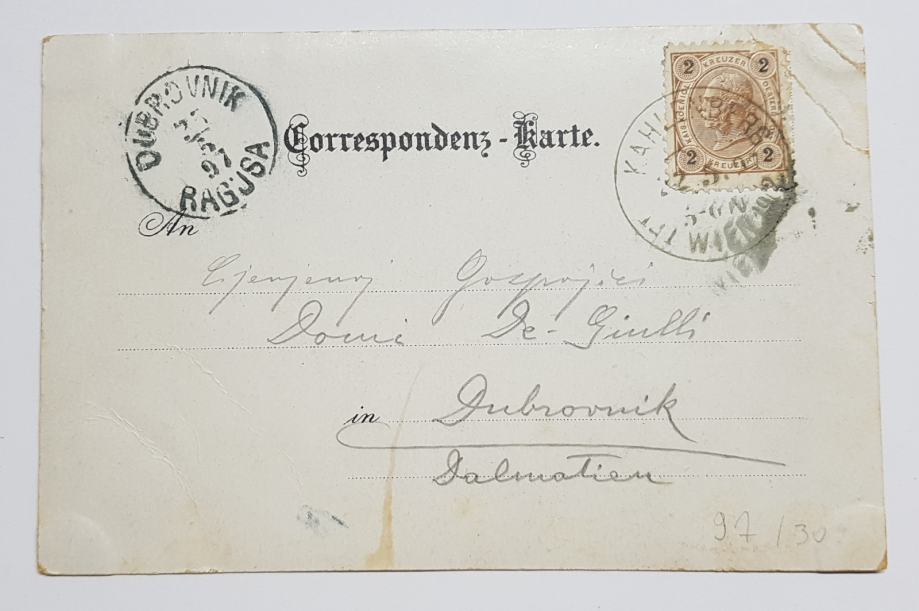 DUBROVNIK
97
RAGUSA
Correspondenz-Karte.
2 KREUZER 2
2 KREUZER 2
KAHLENBERG
WIEN
An
Cijenjenoj Gospojici
Domi De-Giulli
in Dubrovnik
Dalmatien
97/30